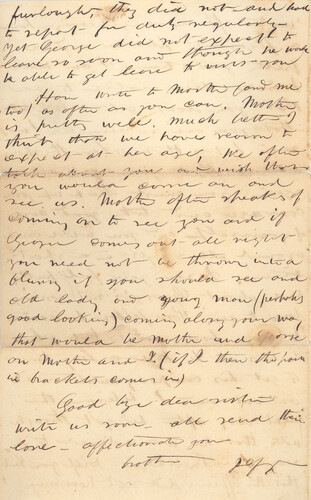 furlough, they did not and had
to report for duty regularly
Yet George did not expect to
leave so soon and thought he would
be able to get leave to visit you
Now write to Mother (and me
too) as often as you can. Mother
is pretty well, much better I
think than we have reason to
expect at her age, We often
talk about you and wish that
you would come on and
see us. Mother often speaks of
coming on to see you and if
George comes out all right
you need not be thrown into a
flurry if you should see and
old lady and young man (perhaps
good looking) coming along your way
that would be Mother and George
or Mother and I. (if I then the part
in brackets comes in)
Good bye dear sister
write us soon all send their
love - affectionate you
brother